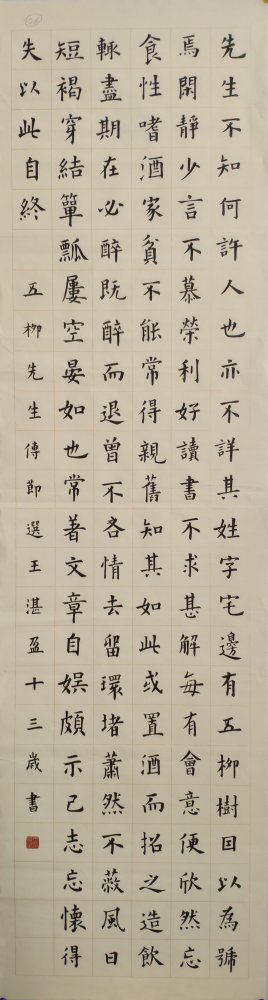 先生不知何許人也亦不詳其姓字宅邊有五柳樹因以為號
焉閑靜少言不慕榮利好讀書不求甚解每有會意便欣然忘
食性嗜酒家貧不能常得親舊知其如此或置酒而招之造飲
輒盡期在必醉既醉而退曾不吝情去留環堵蕭然不蔽風日
短褐穿結簞瓢屢空晏如也常著文章自娛頗示己志忘懷得
失以此自終 五柳先生傳節選王湛盈十三歲書